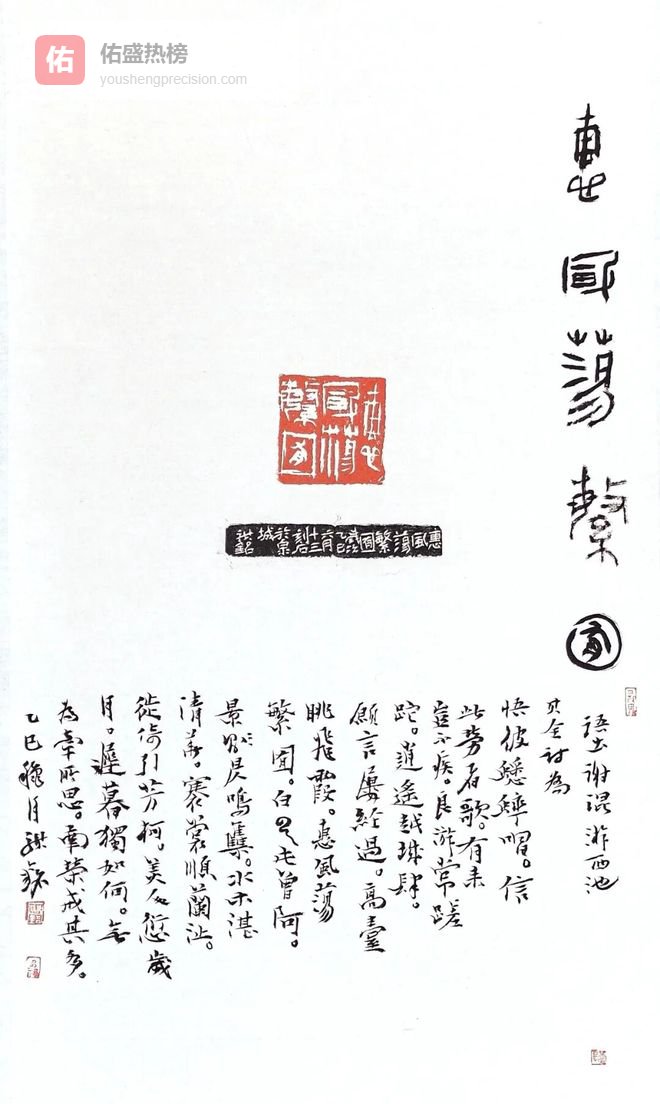 佑
佑盛热榜
youshengprecision.com
惠風蕩繁囿
惠風蕩繁囿
惠風蕩繁囿乙巳六月十三刻石於泉城洪銘
語出謝混游西池
其全詩為
悟彼蟋蟀唱。信
此勞者歌。有来
豈不疾。良游常蹉
跎。逍遙越城肆。
願言屢經過。高臺
眺飛霞。惠風蕩
繁囿。白雲屯曾阿。
景昃鳴集。水木湛
清華。褰裳順蘭沚。
徙倚引芳柯。美人愆歲
月。遲暮獨如何。无
為牽所思。南榮戒其多。
乙巳穐月洪銘